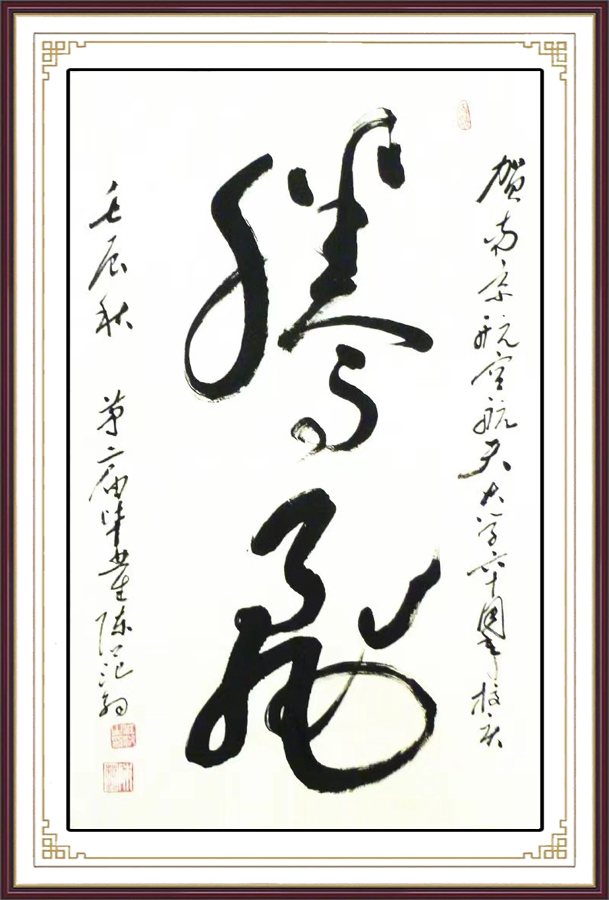 贺南京航空航天大学六十周年校庆
腾飞
壬辰秋 第二届毕业生陈范